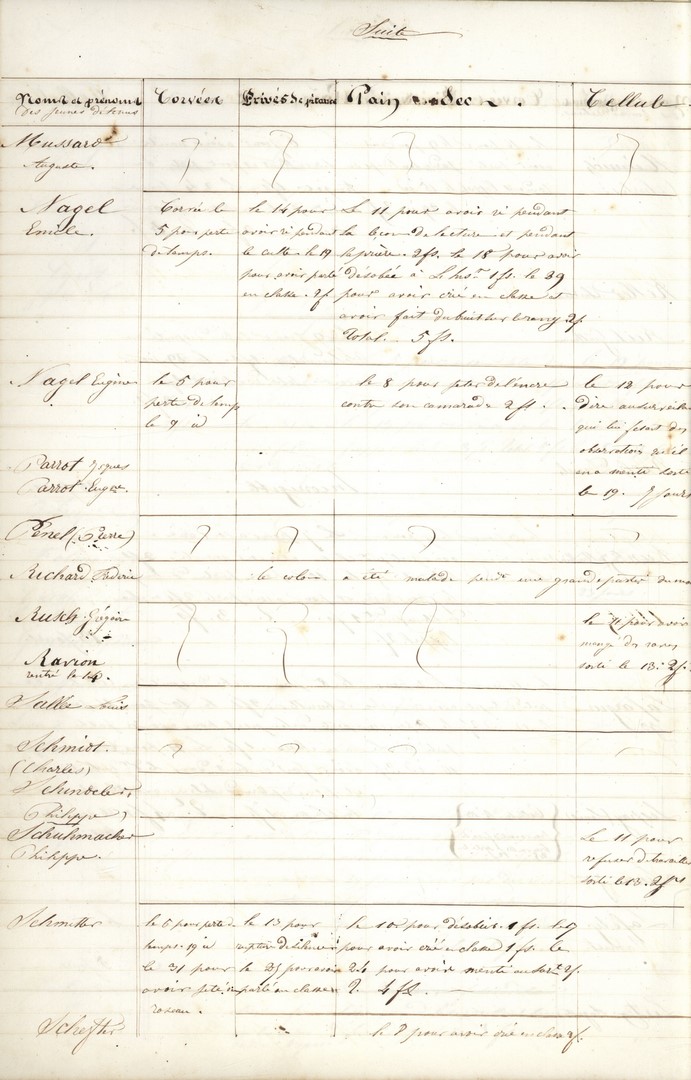 Suite
Noms et prénoms Corvées Privés de pitance Pain sec Cellule
des jeunes détenus
Mussard
Auguste.
Nagel
Emile.
Corvée le
5 pour perte
de temps.
le 14 pour
avoir ri pendant
le culte le 19
pour avoir parlé
en classe. 2f
Le 11 pour avoir ri pendant
la leçon de lecture et pendant
la prière. 2fs. le 18 pour avoir
désobéi à 1fs. le 29
pour avoir crié en classe et
avoir fait du bruit sur le rang 2f.
Total. 5 fs.
Nagel Eugène
le 5 pour
perte de temps
le 7 id
le 8 pour jeter de l'encre
contre son camarade 2 fs.
le 12 pour
dire au surveillant
qui lui fesait des
observations qu'il
en a menti sorti
le 19. 7 jours
Parrot
Parrot Eugne.
Penel (Pierre)
Richard Frédéric
le colon a été malade pendt une grande partie du mois
Rusch Gégène
le 11 pour avoir
mangé des raves
sorti le 13. 2f.
Ravion
rentré le 14.
Sallé Louis
Schmidt.
(Charles)
Schindeler,
Philippe
Schuhmacher
Philippe.
Le 11 pour
refuser de travailler
sorti le 13. 2f
Schmitter
le 5 pour perte de
temps. 19 id
le 31 pour
avoir jeté
roseau.
le 13 pour
rupture de silence
le 25 pour avoir
parlé en classe
le 10 pour désobéir. 1 fs. le 17
pour avoir crié en classe 1 fs. le
24 pour avoir menti au 2f.
4 fs.
Scheffter
le 8 pour avoir crié en classe 2f.